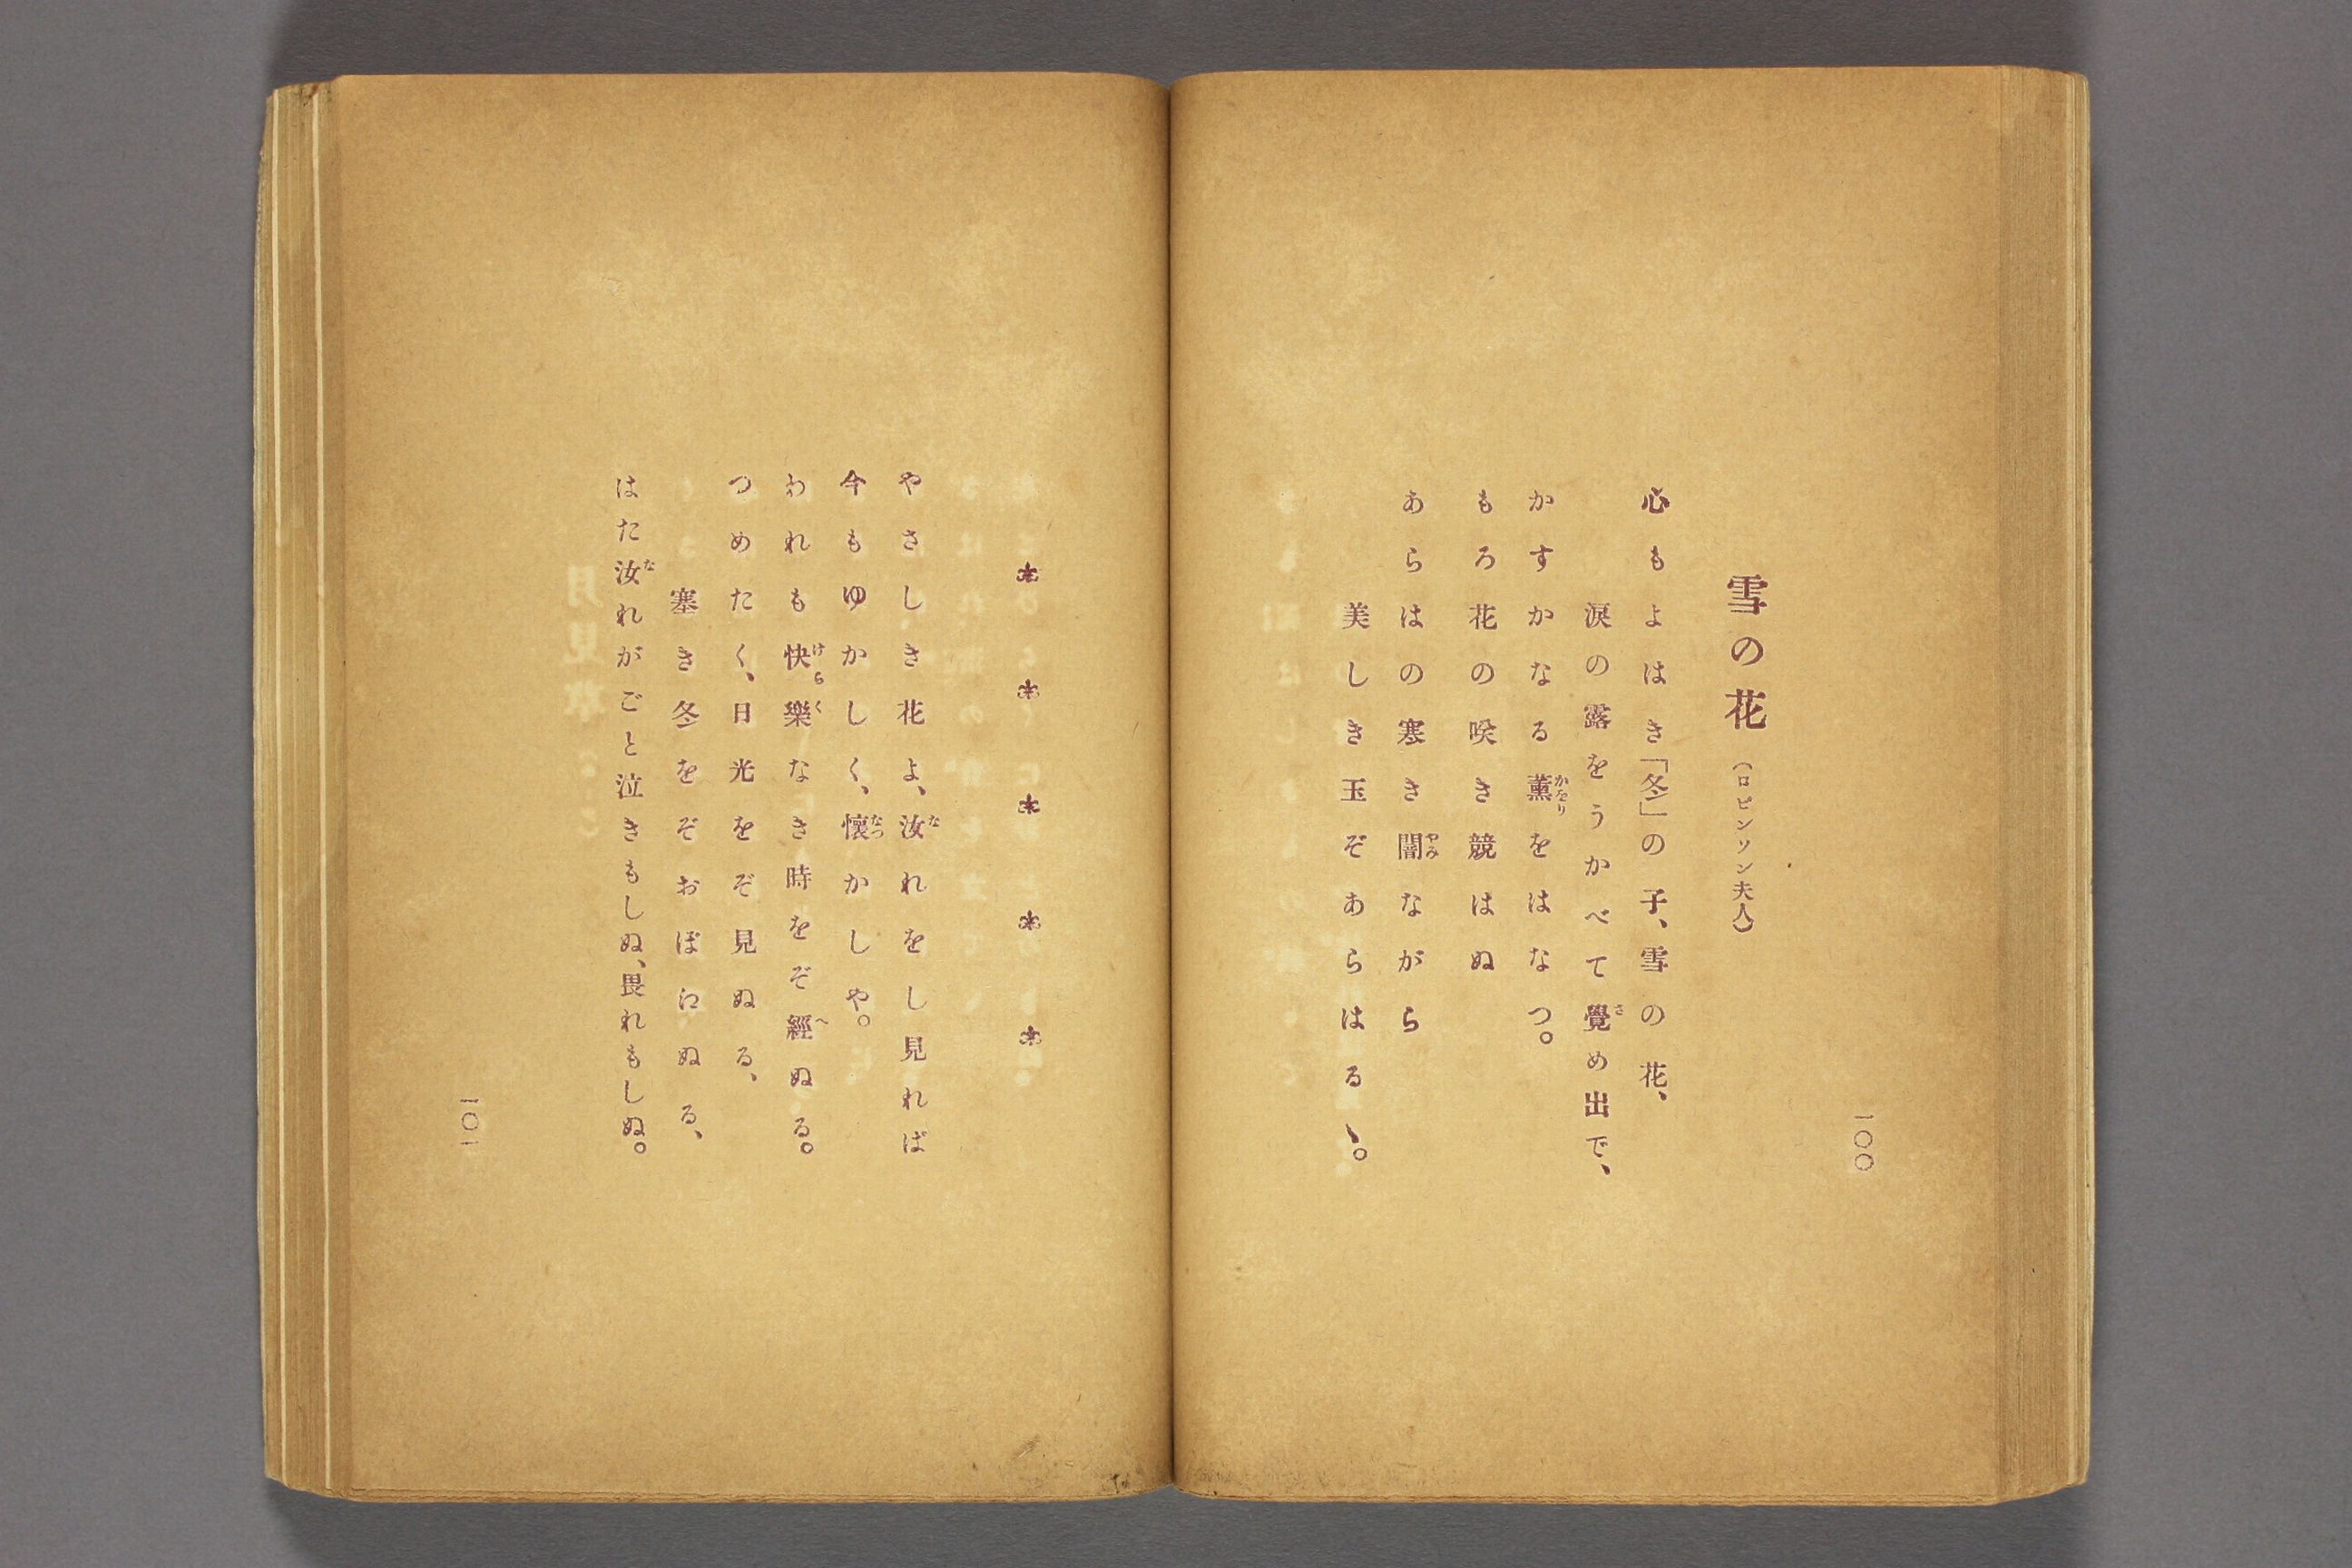 一〇〇
雪の花（ロビンソン夫人）
心もよはき「冬」の子、雪の花、
涙の露をうかべて覺め出で、
かすかなる薫をはなつ。
もろ花の咲き競はぬ
あらはの寒き闇ながら
美しき玉ぞあらはるゝ。
やさしき花よ、汝れをし見れば
今もゆかしく、懷かしや。
われも快樂なき時をぞ經ぬる。
つめたく、日光をぞ見ぬる、
塞き冬をぞおぼにぬる、
はた汝れがごと泣きもしぬ、畏れもしぬ。
一〇一